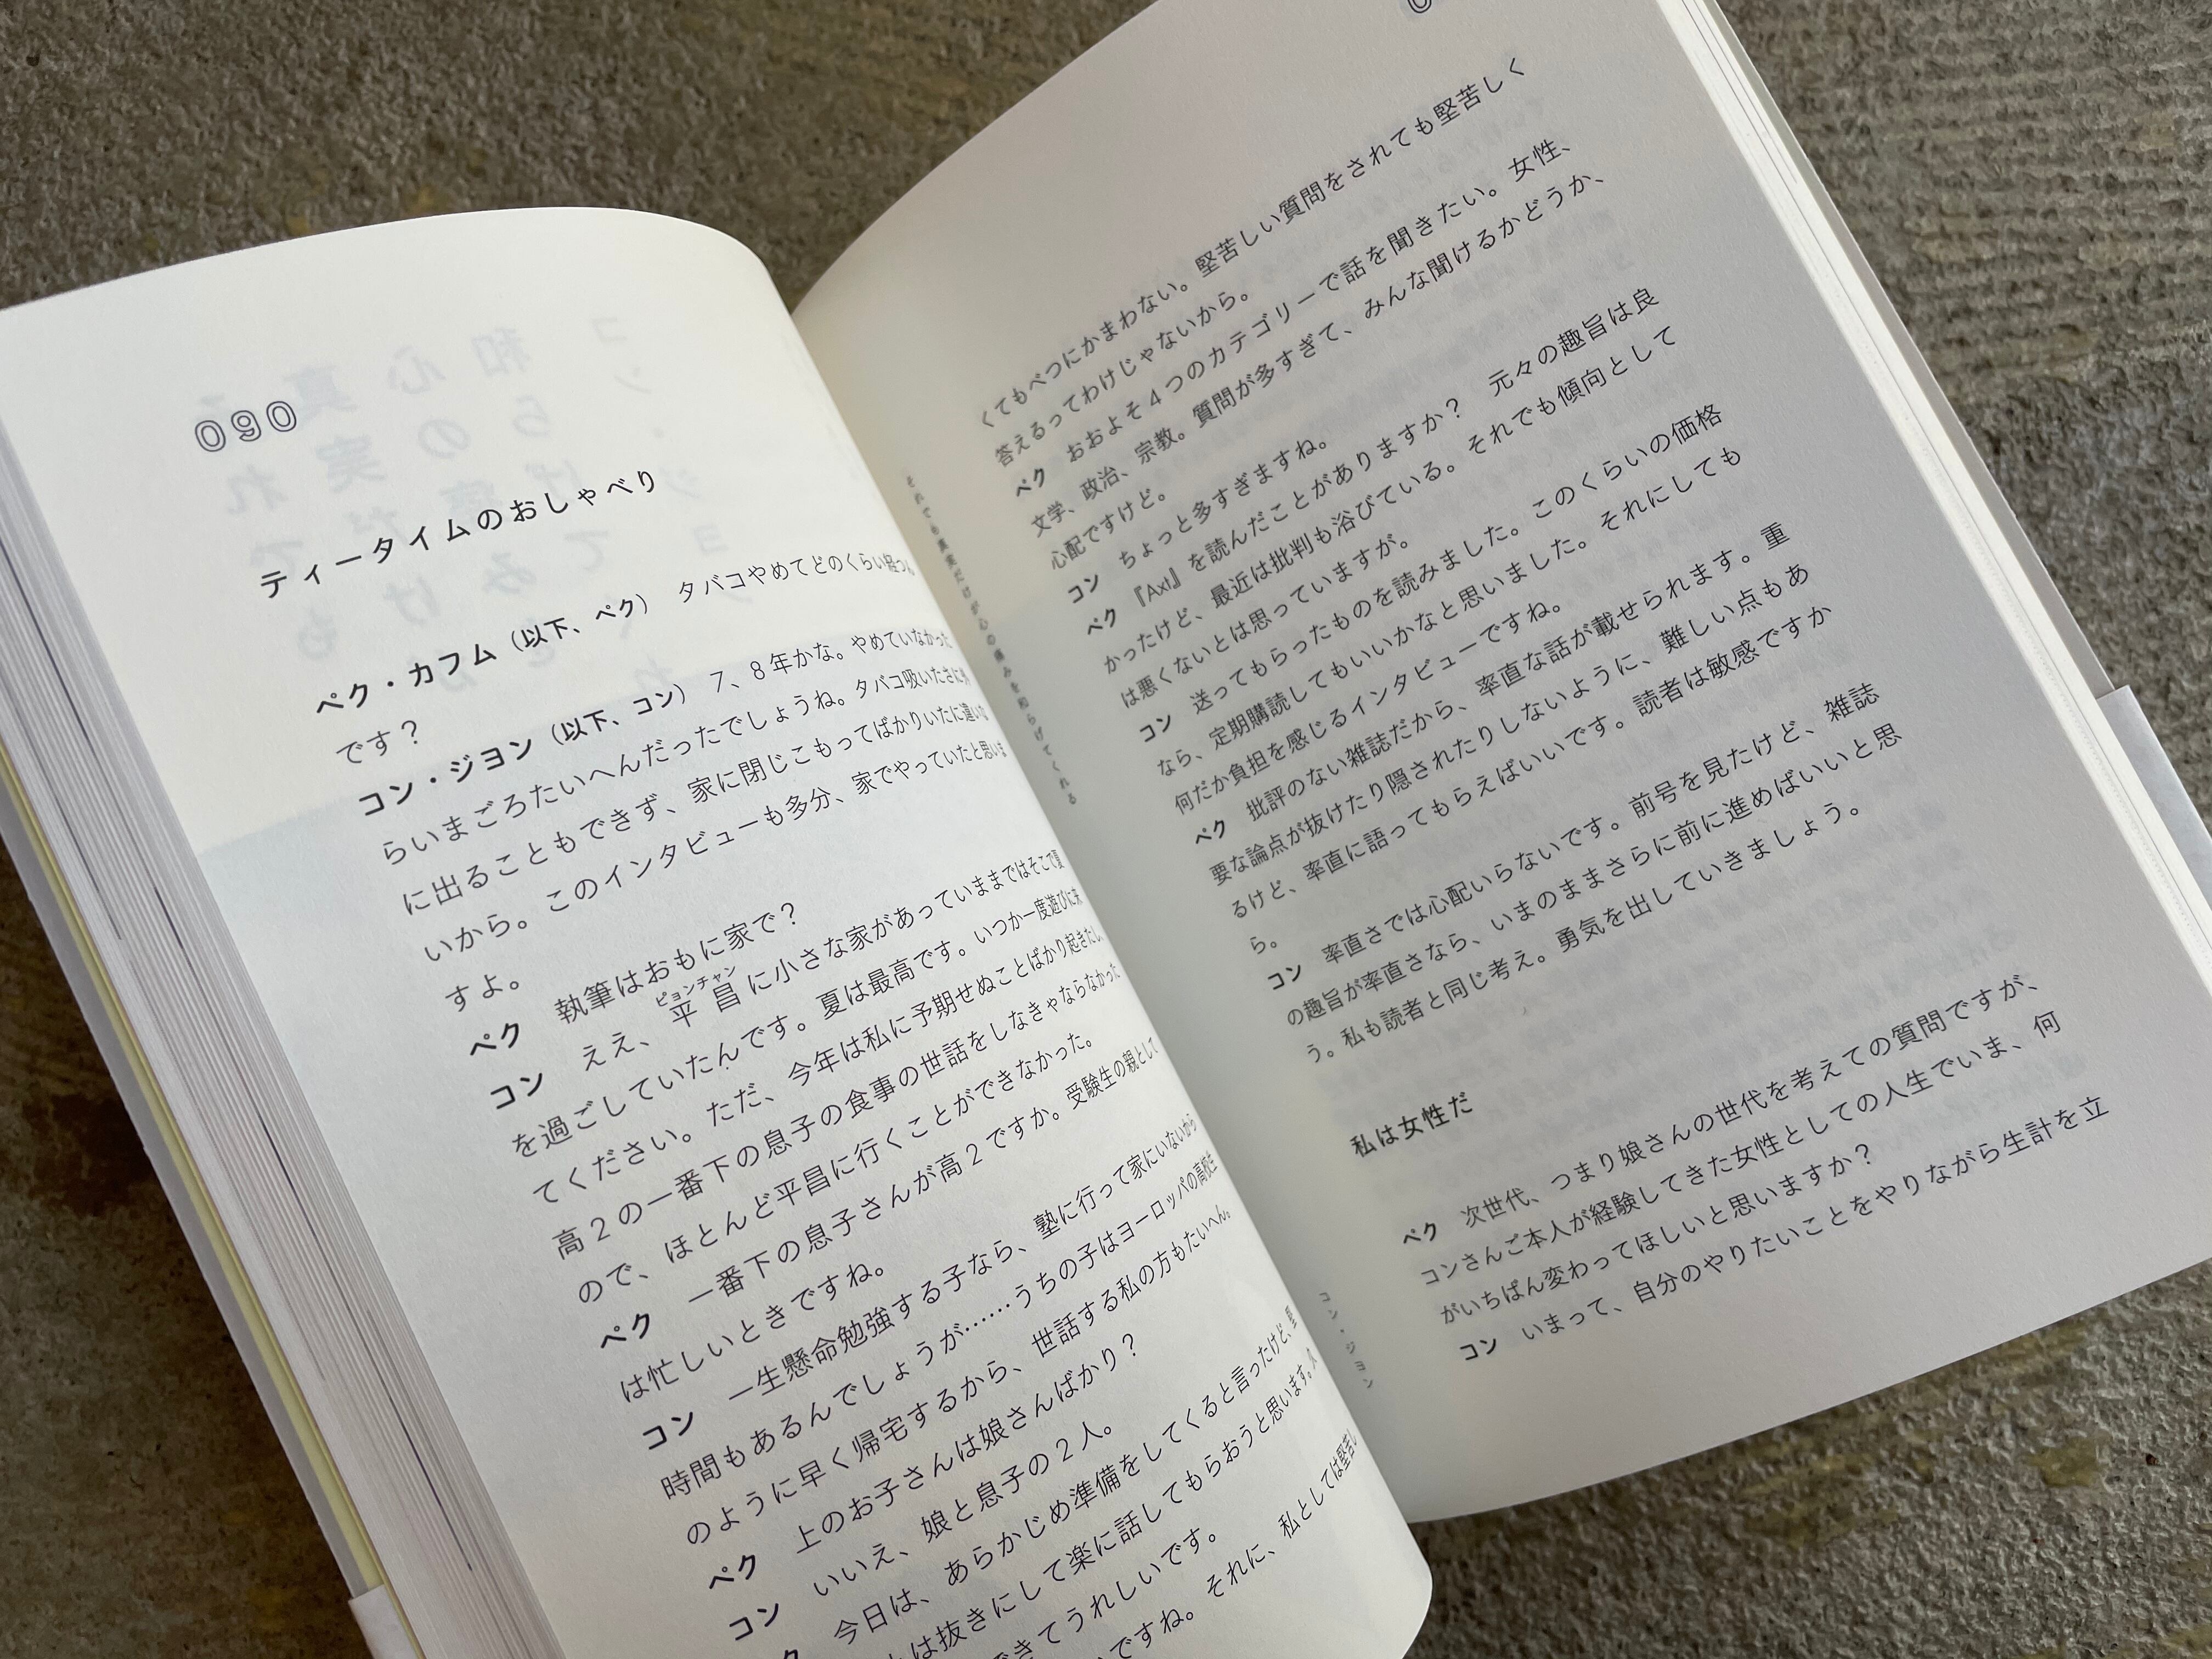 090
ティータイムのおしゃべり
ペク・カフム（以下、ペク）　タバコやめてどのくらい経つ
です？
コン・ジヨン（以下、コン）　7、8年かな。やめていなかった
らいまごろたいへんだったでしょうね。タバコ吸いたさに外
に出ることもできず、家に閉じこもってばかりいたに違いな
いから。このインタビューも多分、家でやっていたと思いま
すよ。
ペク　執筆はおもに家で？
コン　ええ、平昌に小さな家があっていままではそこで夏
ピョンチャン
を過ごしていたんです。夏は最高です。いつか一度遊びに来
てください。ただ、今年は私に予期せぬことばかり起きたし、
高2の一番下の息子の食事の世話をしなきゃならなかった
ので、ほとんど平昌に行くことができなかった。
ペク　一番下の息子さんが高2ですか。受験生の親として
は忙しいときですね。
コン　一生懸命勉強する子なら、塾に行って家にいないから
時間もあるんでしょうが……うちの子はヨーロッパの高校生
のように早く帰宅するから、世話する私の方もたいへん。
ペク　上のお子さんは娘さんばかり？
コン　いいえ、娘と息子の2人。
ク　今日は、あらかじめ準備をしてくると言ったけど、
は抜きにして楽に話してもらおうと思います。
できてうれしいです。
ですね。それに、私としては堅苦し
それでも真実だけが心の痛みを和らげてくれる
コン・ジヨン
くてもべつにかまわない。堅苦しい質問をされても堅苦しく
答えるってわけじゃないから。
ペク　おおよそ4つのカテゴリーで話を聞きたい。女性、
文学、政治、宗教。質問が多すぎて、みんな聞けるかどうか、
心配ですけど。
コン　ちょっと多すぎますね。
ペク　『Axt』を読んだことがありますか？　元々の趣旨は良
かったけど、最近は批判も浴びている。それでも傾向として
は悪くないとは思っていますが。
コン　送ってもらったものを読みました。このくらいの価格
なら、定期購読してもいいかなと思いました。それにしても
何だか負担を感じるインタビューですね。
ペク　批評のない雑誌だから、率直な話が載せられます。重
要な論点が抜けたり隠されたりしないように、難しい点もあ
るけど、率直に語ってもらえばいいです。読者は敏感ですか
ら。
コン　率直さでは心配いらないです。前号を見たけど、雑誌
の趣旨が率直さなら、いまのままさらに前に進めばいいと思
う。私も読者と同じ考え。勇気を出していきましょう。
私は女性だ
ペク　次世代、つまり娘さんの世代を考えての質問ですが、
コンさんご本人が経験してきた女性としての人生でいま、何
がいちばん変わってほしいと思いますか？
コン　いまって、自分のやりたいことをやりながら生計を立